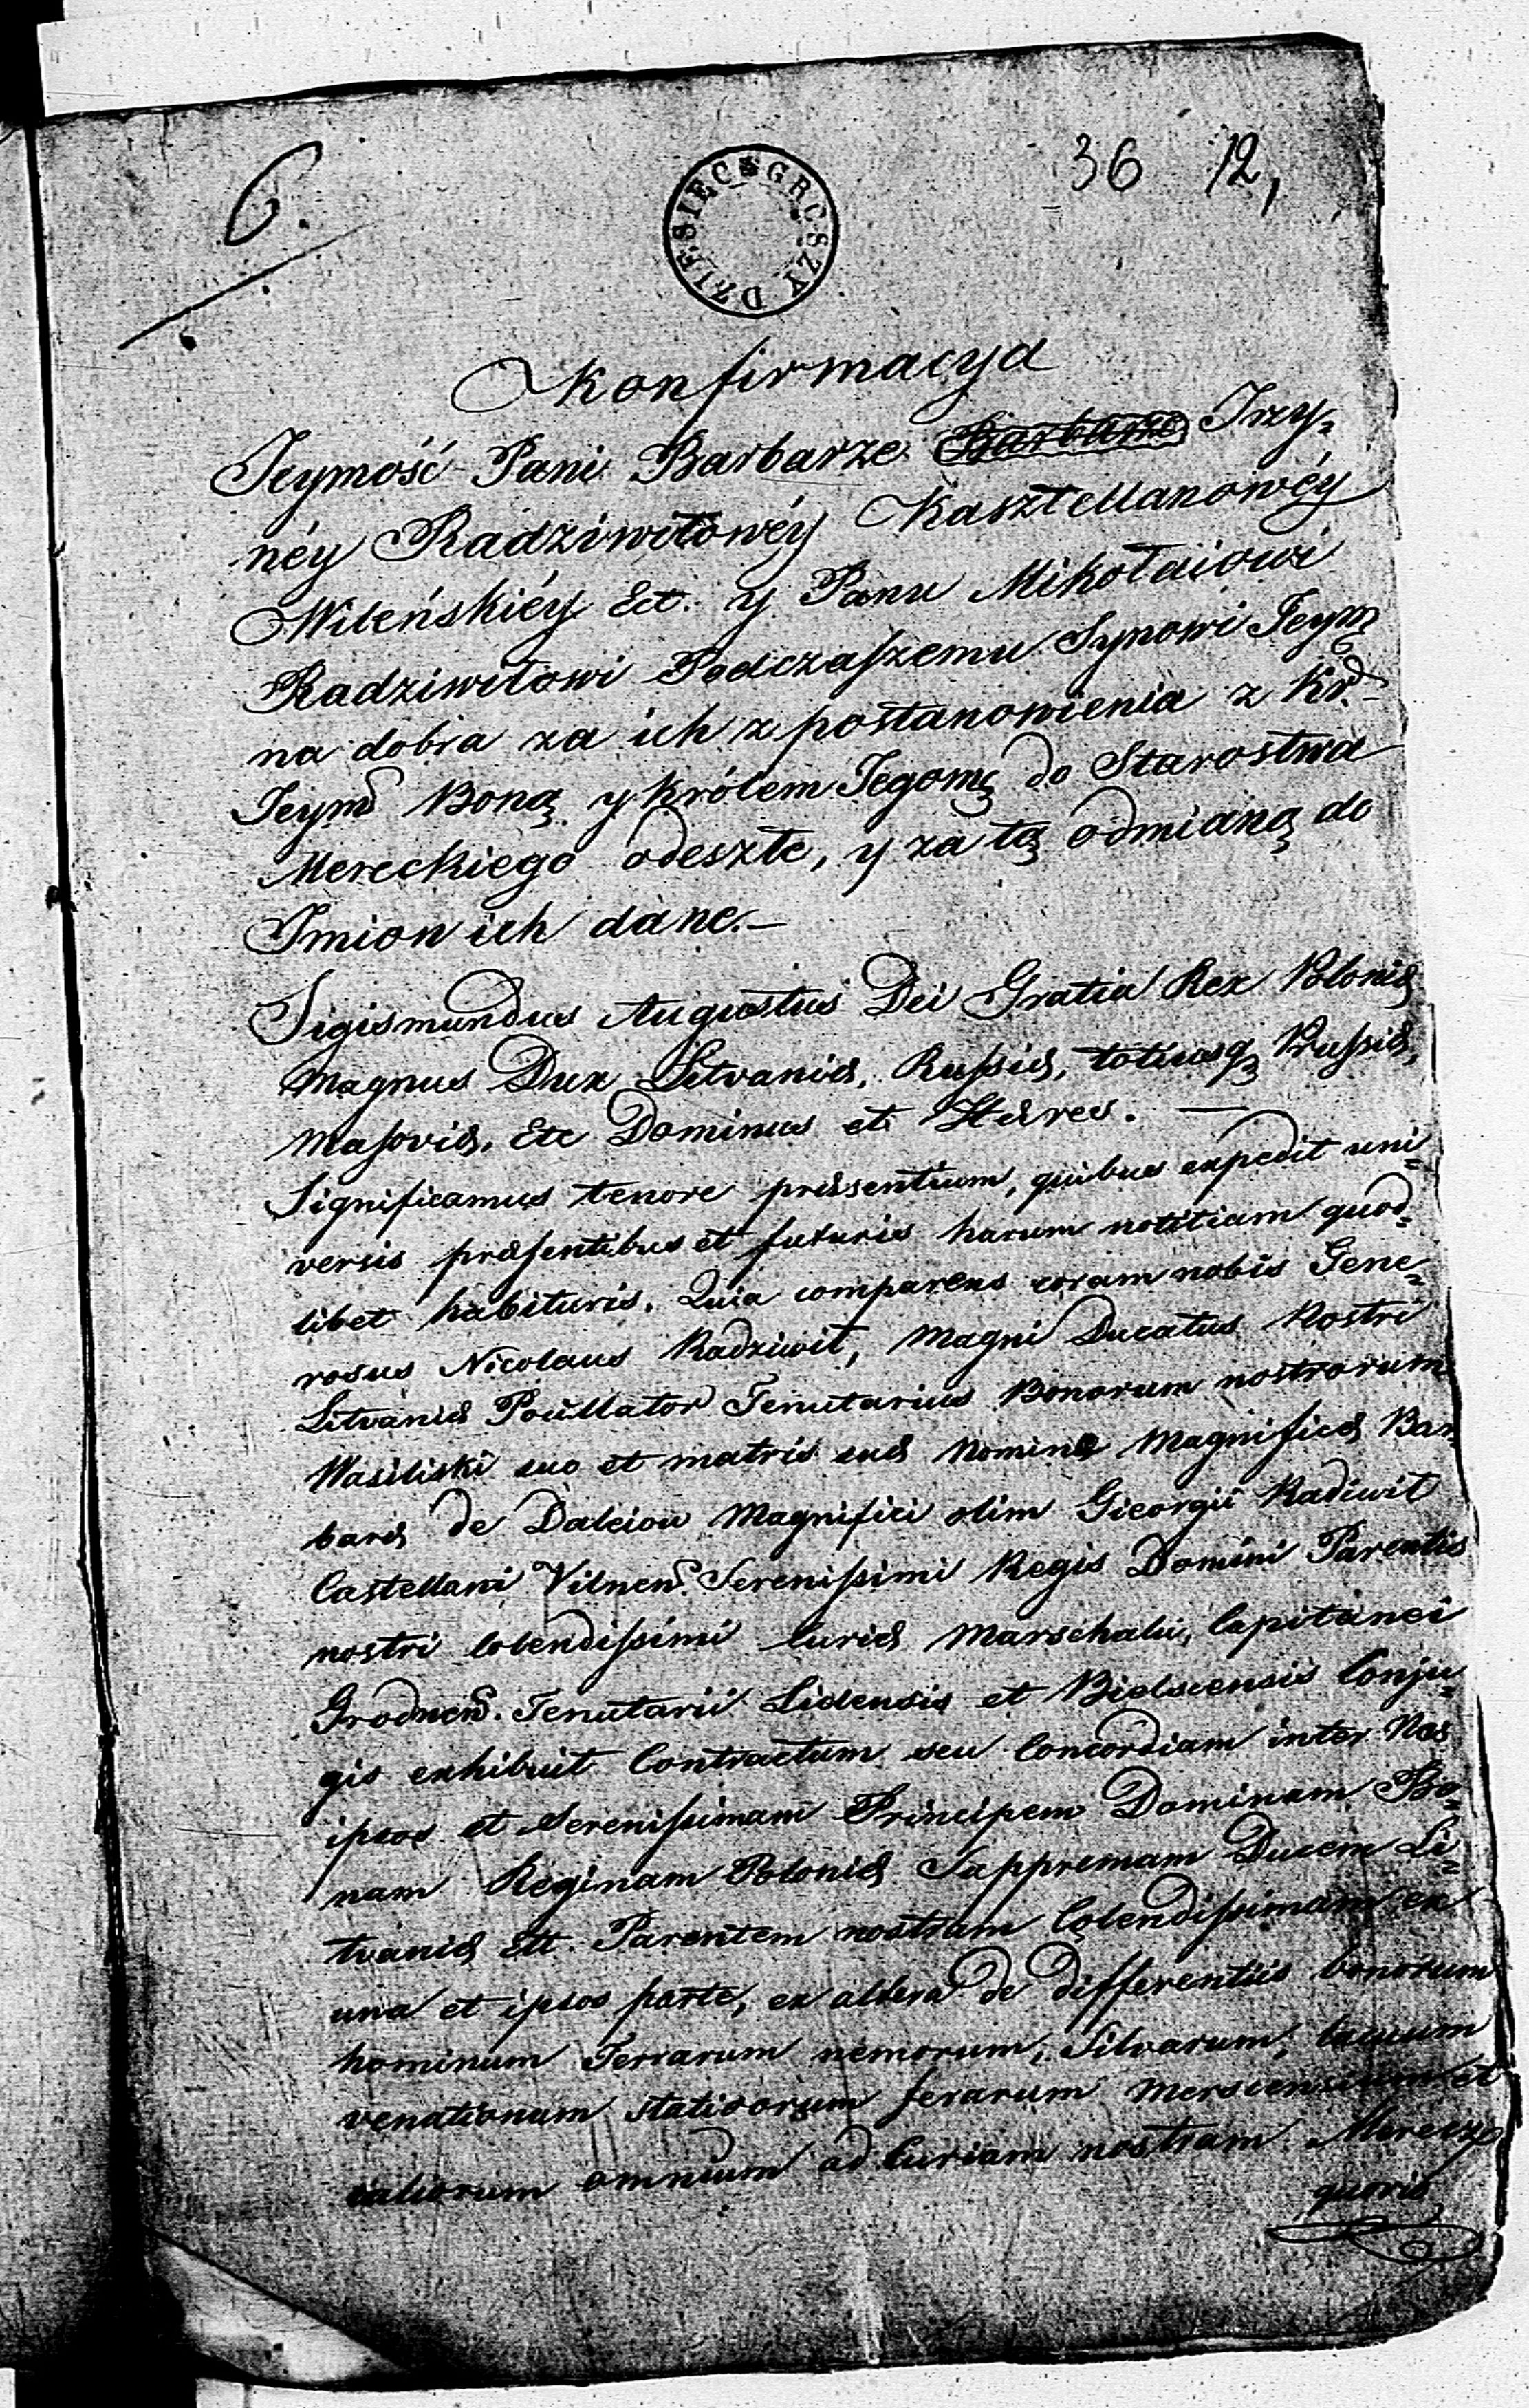 6.
36 12,
DZIESIĘC GROSZY
Konfirmacya
Jeymość Pani Barbarze Jrzy-
néy Radziwiłowéy Kasztellanowéy
Wileńskiéy Ect. y Panu Mikołaiowi
Radziwiłowi Podczaszemu Synowi Jeym
na dobra za ich z postanowienia z Kr.
Jeym Boną y Królem Jegomę do Starostwa
Mereckiego odeszłe, y za tą odmianą do
Jmion ich dane.—
Sigismundus Augustus Dei Gratia Rex Poloniæ
Magnus Dux Litvaniæ, Russiæ, totiusq Prussiæ,
Masoviæ, Etc Dominus et Hæres. —
Significamus tenore præsentium, quibus expedit uni-
versis præsentibus et futuris harum notitiam quod-
libet habituris. Quia comparens coram nobis Gene-
rosus Nicolaus Radziwił, Magni Ducatus Nostri
Litvaniæ Pocillator Tenutarius Bonorum nostrorum
Wasiliski suo et matris suæ Nomine Magnificæ Bar-
baræ de Dalciow Magnifici olim Gieorgii Radiwił
Castellani Vilnen. Serenissimi Regis Domini Parentis
nostri Colendissimi Curiæ Marschalii, Capitanei
Grodnen. Tenutarii Lidensis et Bielscensis Conju-
gis exhibuit Contractum seu Concordiam inter Nos
ipsos et Serenissimam Principem Dominam Bo-
nam Reginam Poloniæ Suppremam Ducem Li-
tvaniæ Ett. Parentem nostram Colendissimam ex
una et ipsos parte, ex altera de differentiis bonorum
hominum Terrarum nemorum, Silvarum, lacuum
venationum stationum ferarum Merscensium et
aliorum omnium ad Curiam nostram Merecz
quoris